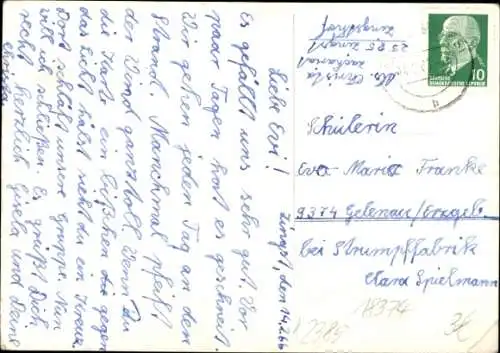 Zingst, den 14.2.66
Liebe Evi!
Es gefällt uns sehr gut. Vor
paar Tagen hat es geschneit.
Wir gehen jeden Tag an den
Strand. Manchmal pfeift
der Wind ganz toll. Wenn Du
die Karte ein bißchen gegen
das Licht hälst siehst du ein Kreuz.
Dort schläft unsere Gruppe. Nun
will ich schließen. Es grüßt Dich
recht herzlich Gisela und Deine
Christa
Abs. Christa
2385 Zingst
DEUTSCHE
DEMOKRATISCHE REPUBLIK
10
b
Schülerin
Eva Maria Franke
9374 Gelenau/Erzgeb.
bei Strumpffabrik
Clara Spielmann
18374
2385
3€